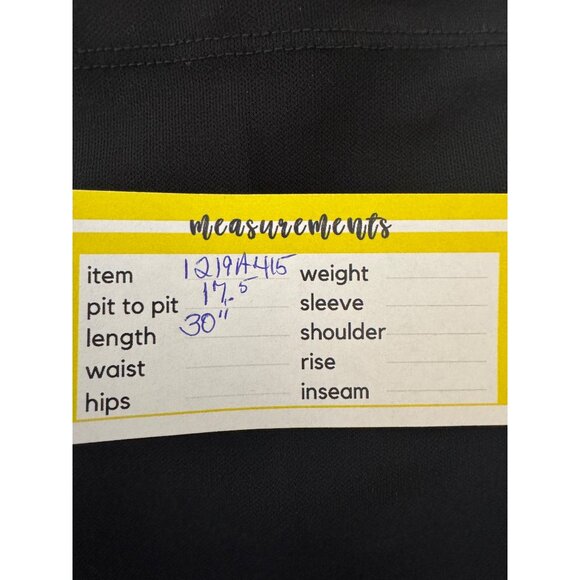 measurements
item 1219A415
pit to pit 17.5
length 30"
waist
hips
weight
sleeve
shoulder
rise
inseam